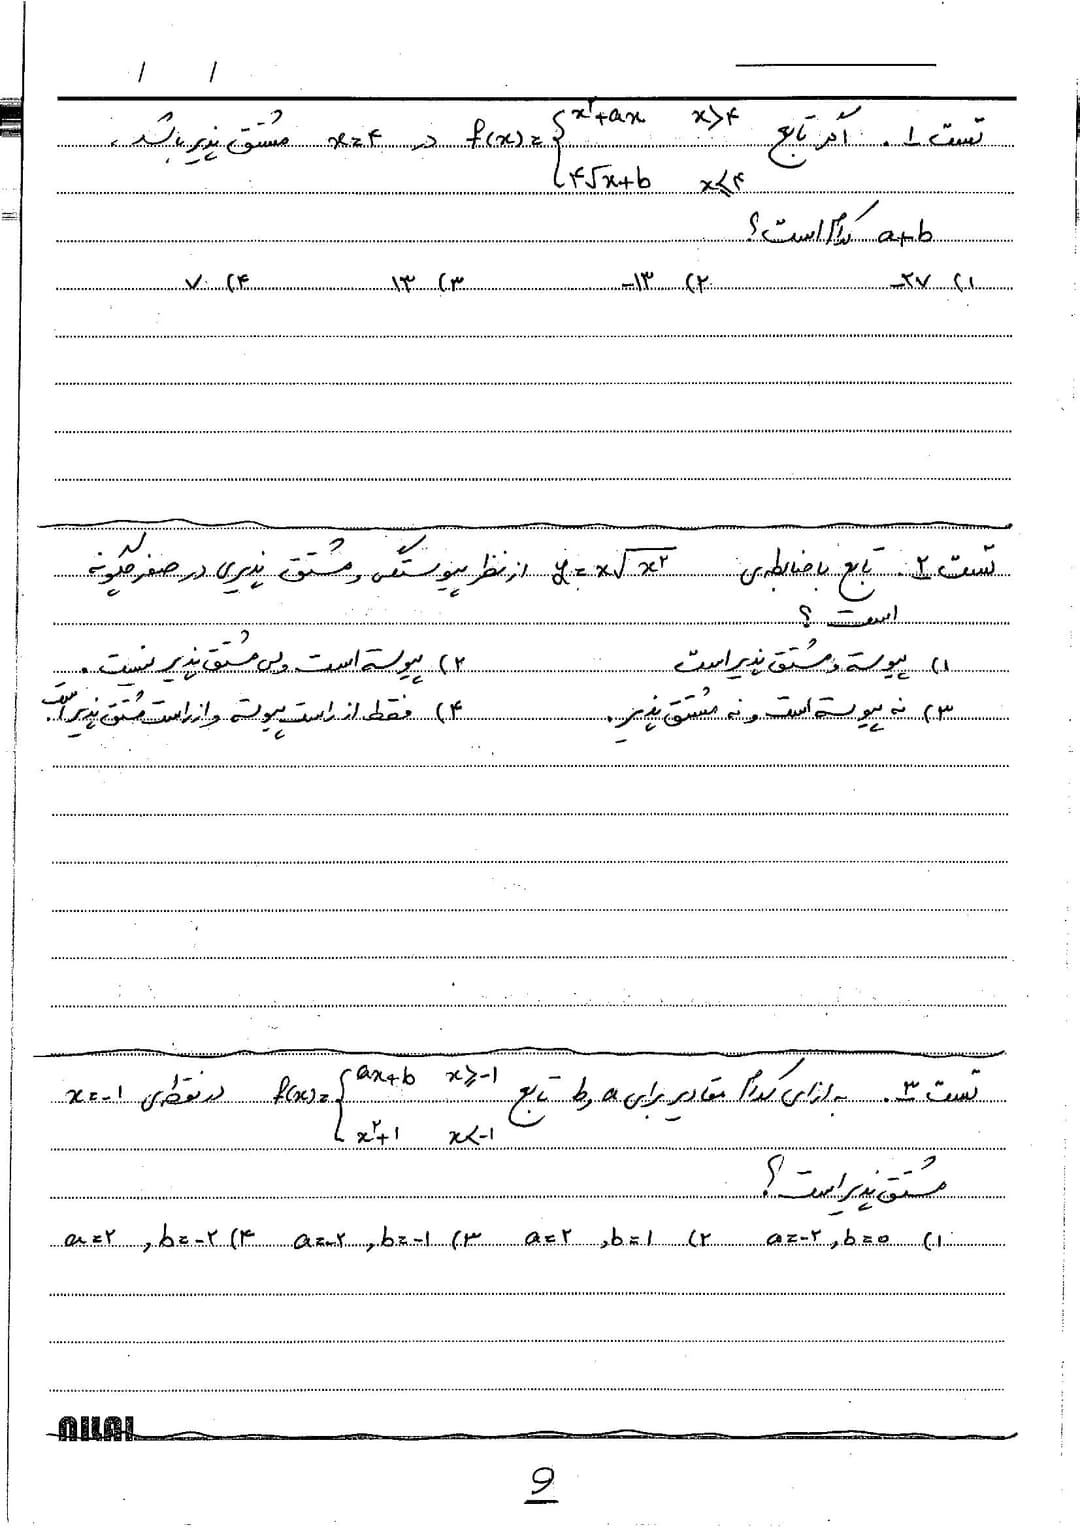 تست ۱. اگر تابع f(x)={x²+ax x>۴ در x=۴ مشتق پذیر باشد،
۴√x+b x≤۴
a+b کدام است؟
۱) -۲۷ ۲) -۱۳ ۳) ۱۳ ۴) ۷
تست ۲. تابع با ضابطه‌ی y=x√x² از نظر پیوستگی و مشتق پذیری در صفر چگونه
است؟
۱) پیوسته و مشتق پذیر است ۲) پیوسته است ولی مشتق پذیر نیست.
۳) نه پیوسته است و نه مشتق پذیر. ۴) فقط از راست پیوسته و از راست مشتق پذیر است.
تست ۳. به ازای کدام مقادیر برای a و b تابع f(x)={ax+b x≥-1 در نقطه‌ی x=-1
x²+1 x<-1
مشتق پذیر است؟
۱) a=-۲, b=0 ۲) a=۲, b=1 ۳) a=-۲, b=-1 ۴) a=۲, b=-۲
AILAI
9